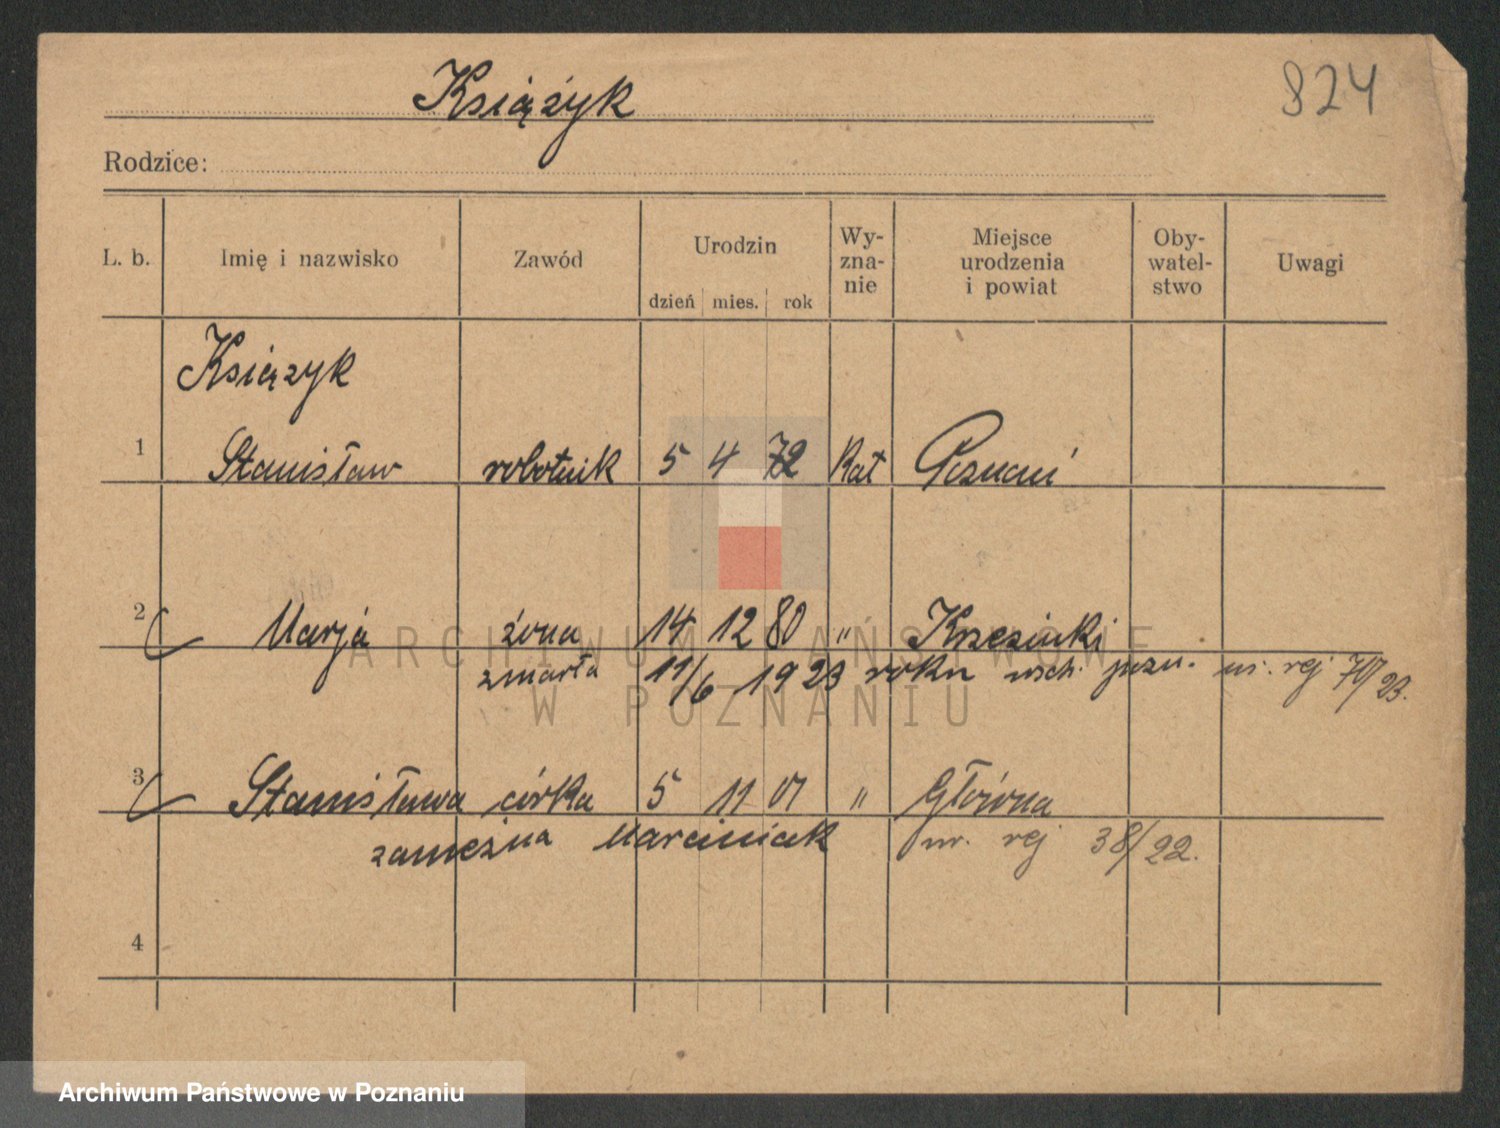 Książyk
824
Rodzice:
L. b. Imię i nazwisko Zawód Urodzin dzień mies. rok Wy-zna-nie Miejsce urodzenia i powiat Oby-watel-stwo Uwagi
Książyk
1 Stanisław robotnik 5 4 72 Kat Poznań
2 Marja żona 14 12 80 " Krzesinki
zmarła 11/6 1923 roku wsch. pozn. nr. rej 717/23.
3 Stanisława córka 5 11 01 " Główna
zamężna Marciniak nr. rej 38/22.
4
ARCHIWUM PAŃSTWOWE
W POZNANIU
Archiwum Państwowe w Poznaniu